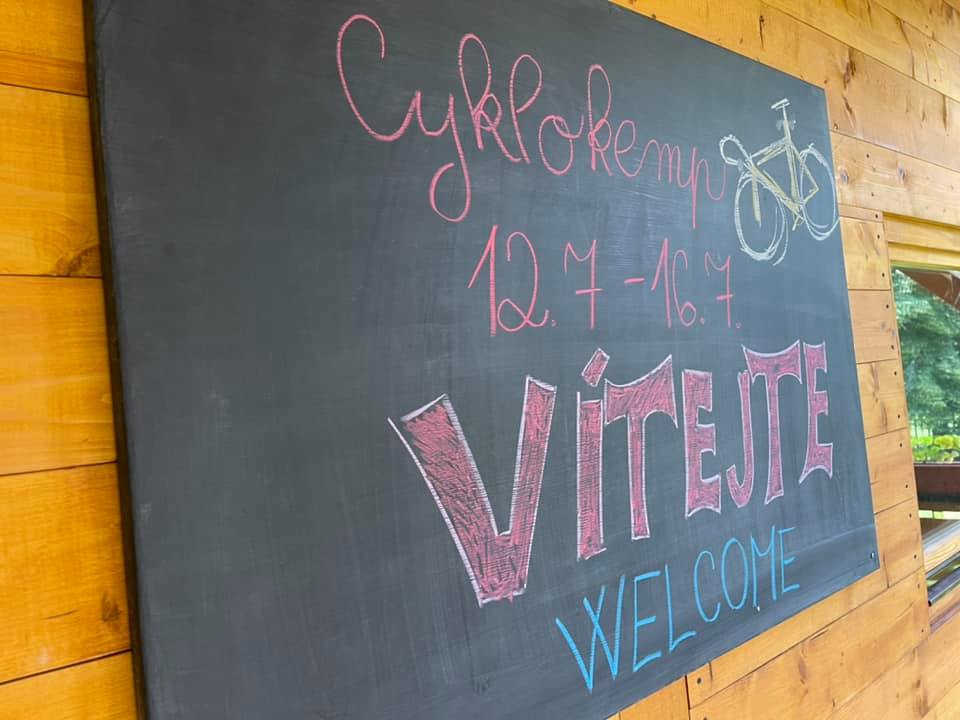 Cyklokemp
12.7-16.7.
VÍTEJTE
WELCOME